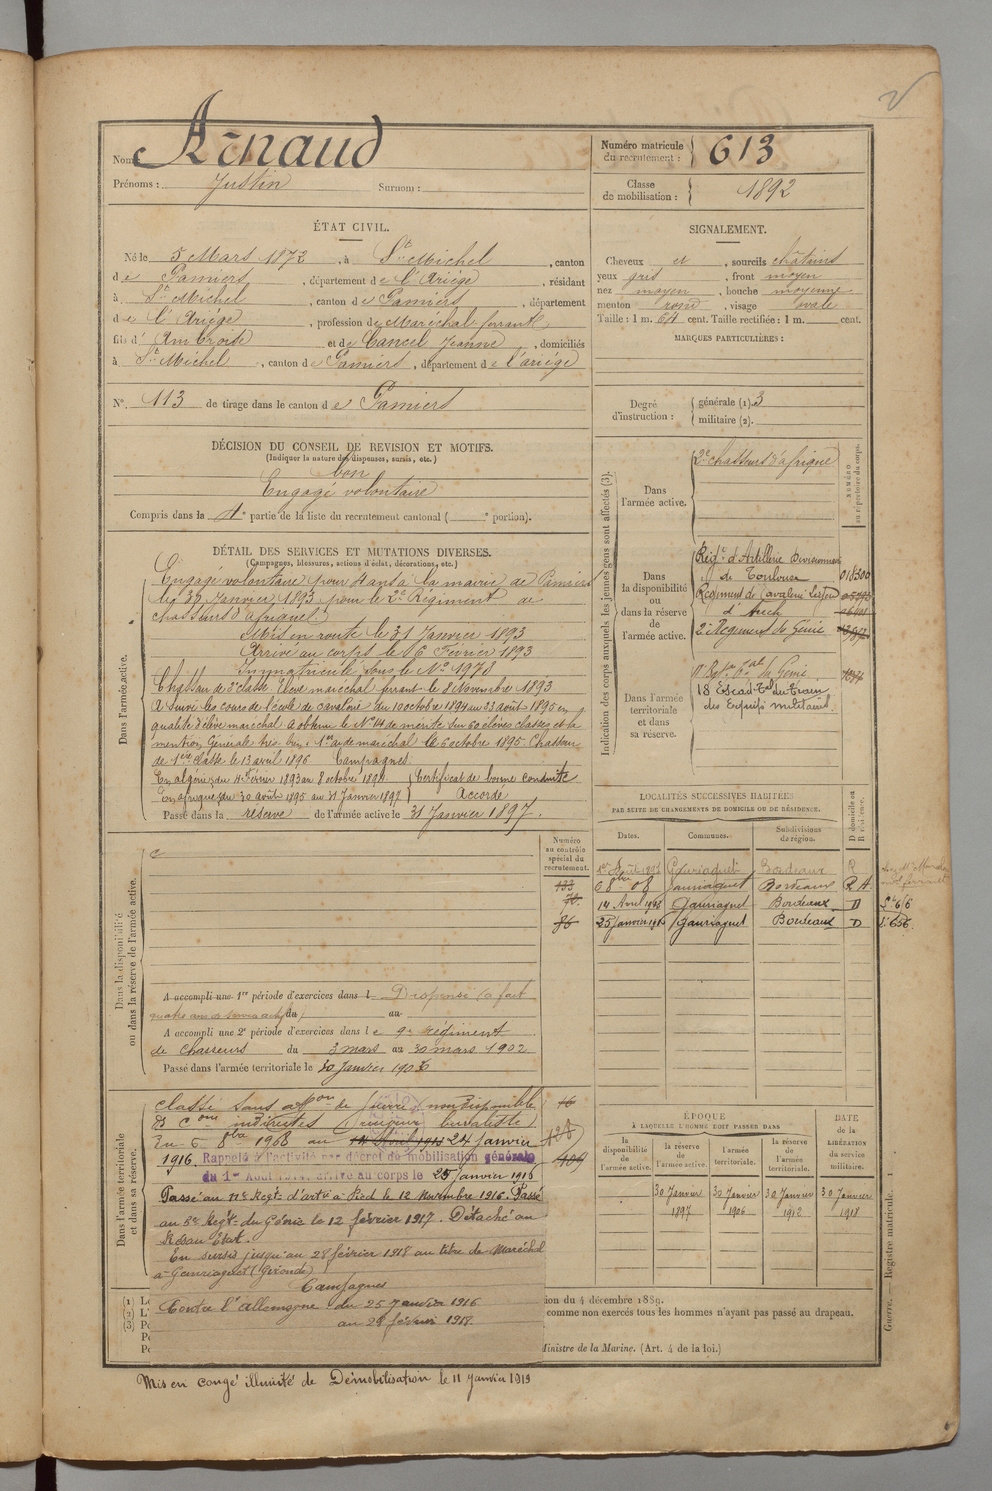 Nom : Arnaud
Prénoms : Justin Surnom :
Numéro matricule du recrutement : 613
Classe de mobilisation : 1892
ÉTAT CIVIL.
Né le 5 Mars 1872, à St Michel, canton
de Pamiers, département de l'Ariége, résidant
à St Michel, canton de Pamiers, département
de l'Ariége, profession de Maréchal ferrant
fils d'Ambroise et de Cancel Jeanne, domiciliés
à St Michel, canton de Pamiers, département de l'ariége
N° 113 de tirage dans le canton de Pamiers
SIGNALEMENT.
Cheveux et, sourcils châtains
yeux gris, front moyen
nez moyen, bouche moyenne
menton rond, visage ovale
Taille : 1 m. 64 cent. Taille rectifiée : 1 m. cent.
MARQUES PARTICULIÈRES :
Degré d'instruction : générale (1). 3
militaire (2).
DÉCISION DU CONSEIL DE REVISION ET MOTIFS.
(Indiquer la nature des dispenses, sursis, etc.)
bon
Engagé volontaire
Compris dans la partie de la liste du recrutement cantonal ( portion).
DÉTAIL DES SERVICES ET MUTATIONS DIVERSES.
(Campagnes, blessures, actions d'éclat, décorations, etc.)
Dans l'armée active.
Engagé volontaire pour 4 ans à la mairie de Pamiers
le 30 Janvier 1893 pour le 2e Régiment de
chasseurs d'afrique
Mis en route le 31 Janvier 1893
Arrivé au corps le 6 Février 1893
Immatriculé sous le No 1978
Chasseur de 2e classe Elève maréchal ferrant le 8 Novembre 1893
A suivi les cours de l'école de cavalerie du 10 octobre 1894 au 23 août 1895 en
qualité d'élève maréchal. A obtenu le No 14 de mérite sur 60 élèves classés et la
mention Générale très bien. 1er aide maréchal le 6 octobre 1895 Chasseur
de 1ère classe le 13 avril 1896 Campagnes
En algérie du février 1893 au 8 octobre 1894 Certificat de bonne conduite
En afrique du 30 août 1895 au 31 Janvier 1897 Accordé
Passé dans la réserve de l'armée active le 31 Janvier 1897.
Indication des corps auxquels les jeunes gens sont affectés (3).
NUMÉRO au répertoire du corps.
Dans l'armée active.
2e chasseurs d'afrique
Dans la disponibilité ou dans la réserve de l'armée active.
Régt d'Artillerie Divisionnaire
de Toulouse
Régiment de Cavalerie Légère
d'Auch
2e Régiment du Génie
Dans l'armée territoriale et dans sa réserve.
18 Escad. Tal du train
des Equip. militaires.
LOCALITÉS SUCCESSIVES HABITÉES
PAR SUITE DE CHANGEMENTS DE DOMICILE OU DE RÉSIDENCE.
Dates. Communes. Subdivisions de région. D domicile ou R résidence.
Gauriaguet Bordeaux R
6 8bre 08 Gauriaguet Bordeaux R A
14 Avril 1913 Gauriaguet Bordeaux D
25 Janvier 1916 Gauriaguet Bordeaux D
Numéro au contrôle spécial du recrutement.
Dans la disponibilité ou dans la réserve de l'armée active.
A accompli une 1re période d'exercices dans l Dispensé (a fait
quatre ans de service actif) du au
A accompli une 2e période d'exercices dans le 9e Régiment
de Chasseurs du 3 mars au 30 mars 1902
Passé dans l'armée territoriale le 30 Janvier 1906
Dans l'armée territoriale et dans sa réserve.
Classé sans aon de guerre non disponible
Ds Cons indirectes (receveur buraliste)
Du 6 8bre 1908 au 14 Avril 1913 24 Janvier
1916. Rappelé à l'activité par décret de mobilisation générale
du 1er Août 1914, arrivé au corps le 25 Janvier 1916
Passé au Regt d'artie à Pied le 12 Novembre 1916. Passé
au 5e Regt du Génie le 12 février 1917. Détaché au
Réseau Etat.
En sursis jusqu'au 28 février 1918 au titre de Maréchal
à Gauriaguet (Gironde)
Campagnes
Contre l'Allemagne du 25 Janvier 1916
au 28 février 1918.
ÉPOQUE
A LAQUELLE L'HOMME DOIT PASSER DANS
la disponibilité de l'armée active. la réserve de l'armée active. l'armée territoriale. la réserve de l'armée territoriale.
DATE de la LIBÉRATION du service militaire.
30 Janvier 1897 30 Janvier 1906 30 Janvier 1912 30 Janvier 1918
tion du 4 décembre 1889.
comme non exercés tous les hommes n'ayant pas passé au drapeau.
Ministre de la Marine. (Art. 4 de la loi.)
Guerre. — Registre matricule. 1
Mis en congé illimité de Démobilisation le 11 Janvier 1919